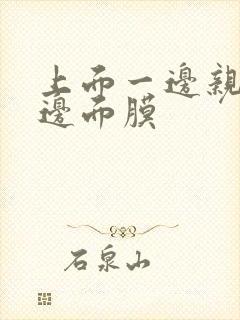 上而一邊親
邊而膜
石泉山